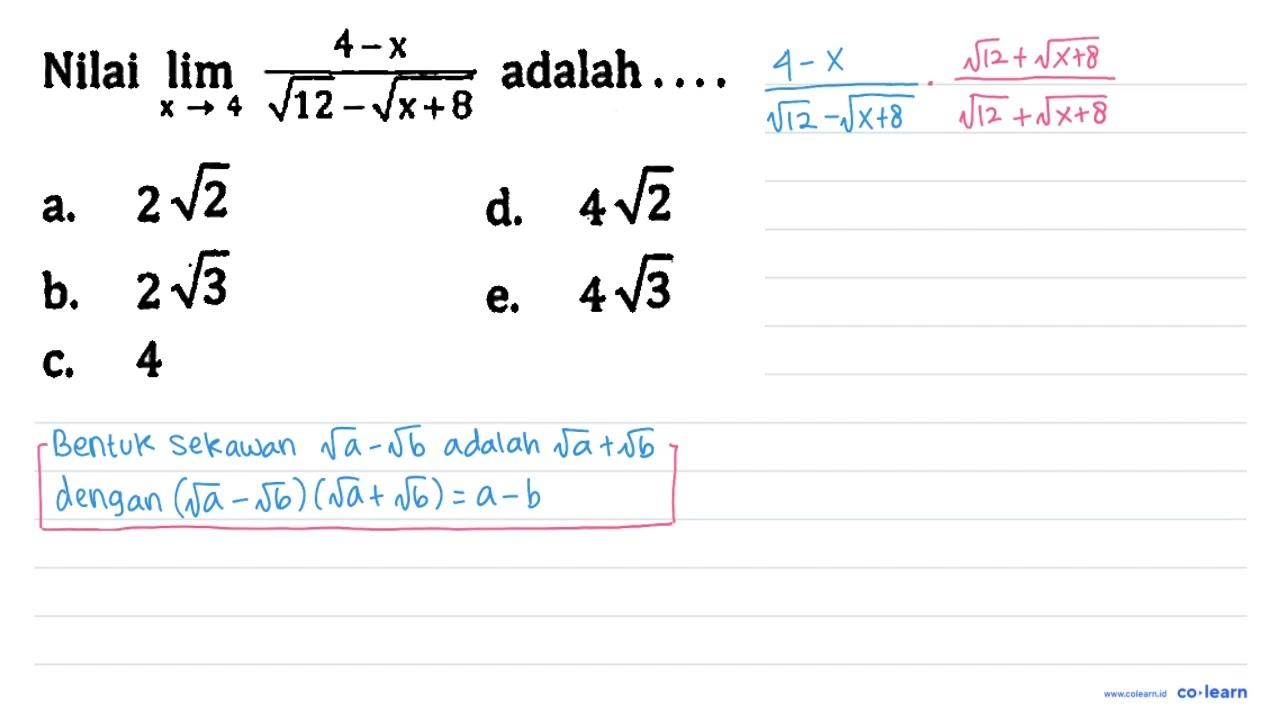 Nilai lim x → 4 (4 - x)/(√12 - √(x + 8)) adalah . . . .
(4 - x)/(√12 - √(x+8)) · (√12 + √(x+8))/(√12 + √(x+8))
a. 2√2
b. 2√3
c. 4
d. 4√2
e. 4√3
Bentuk sekawan √a - √b adalah √a + √b
dengan (√a - √b)(√a + √b) = a - b
www.colearn.id co·learn